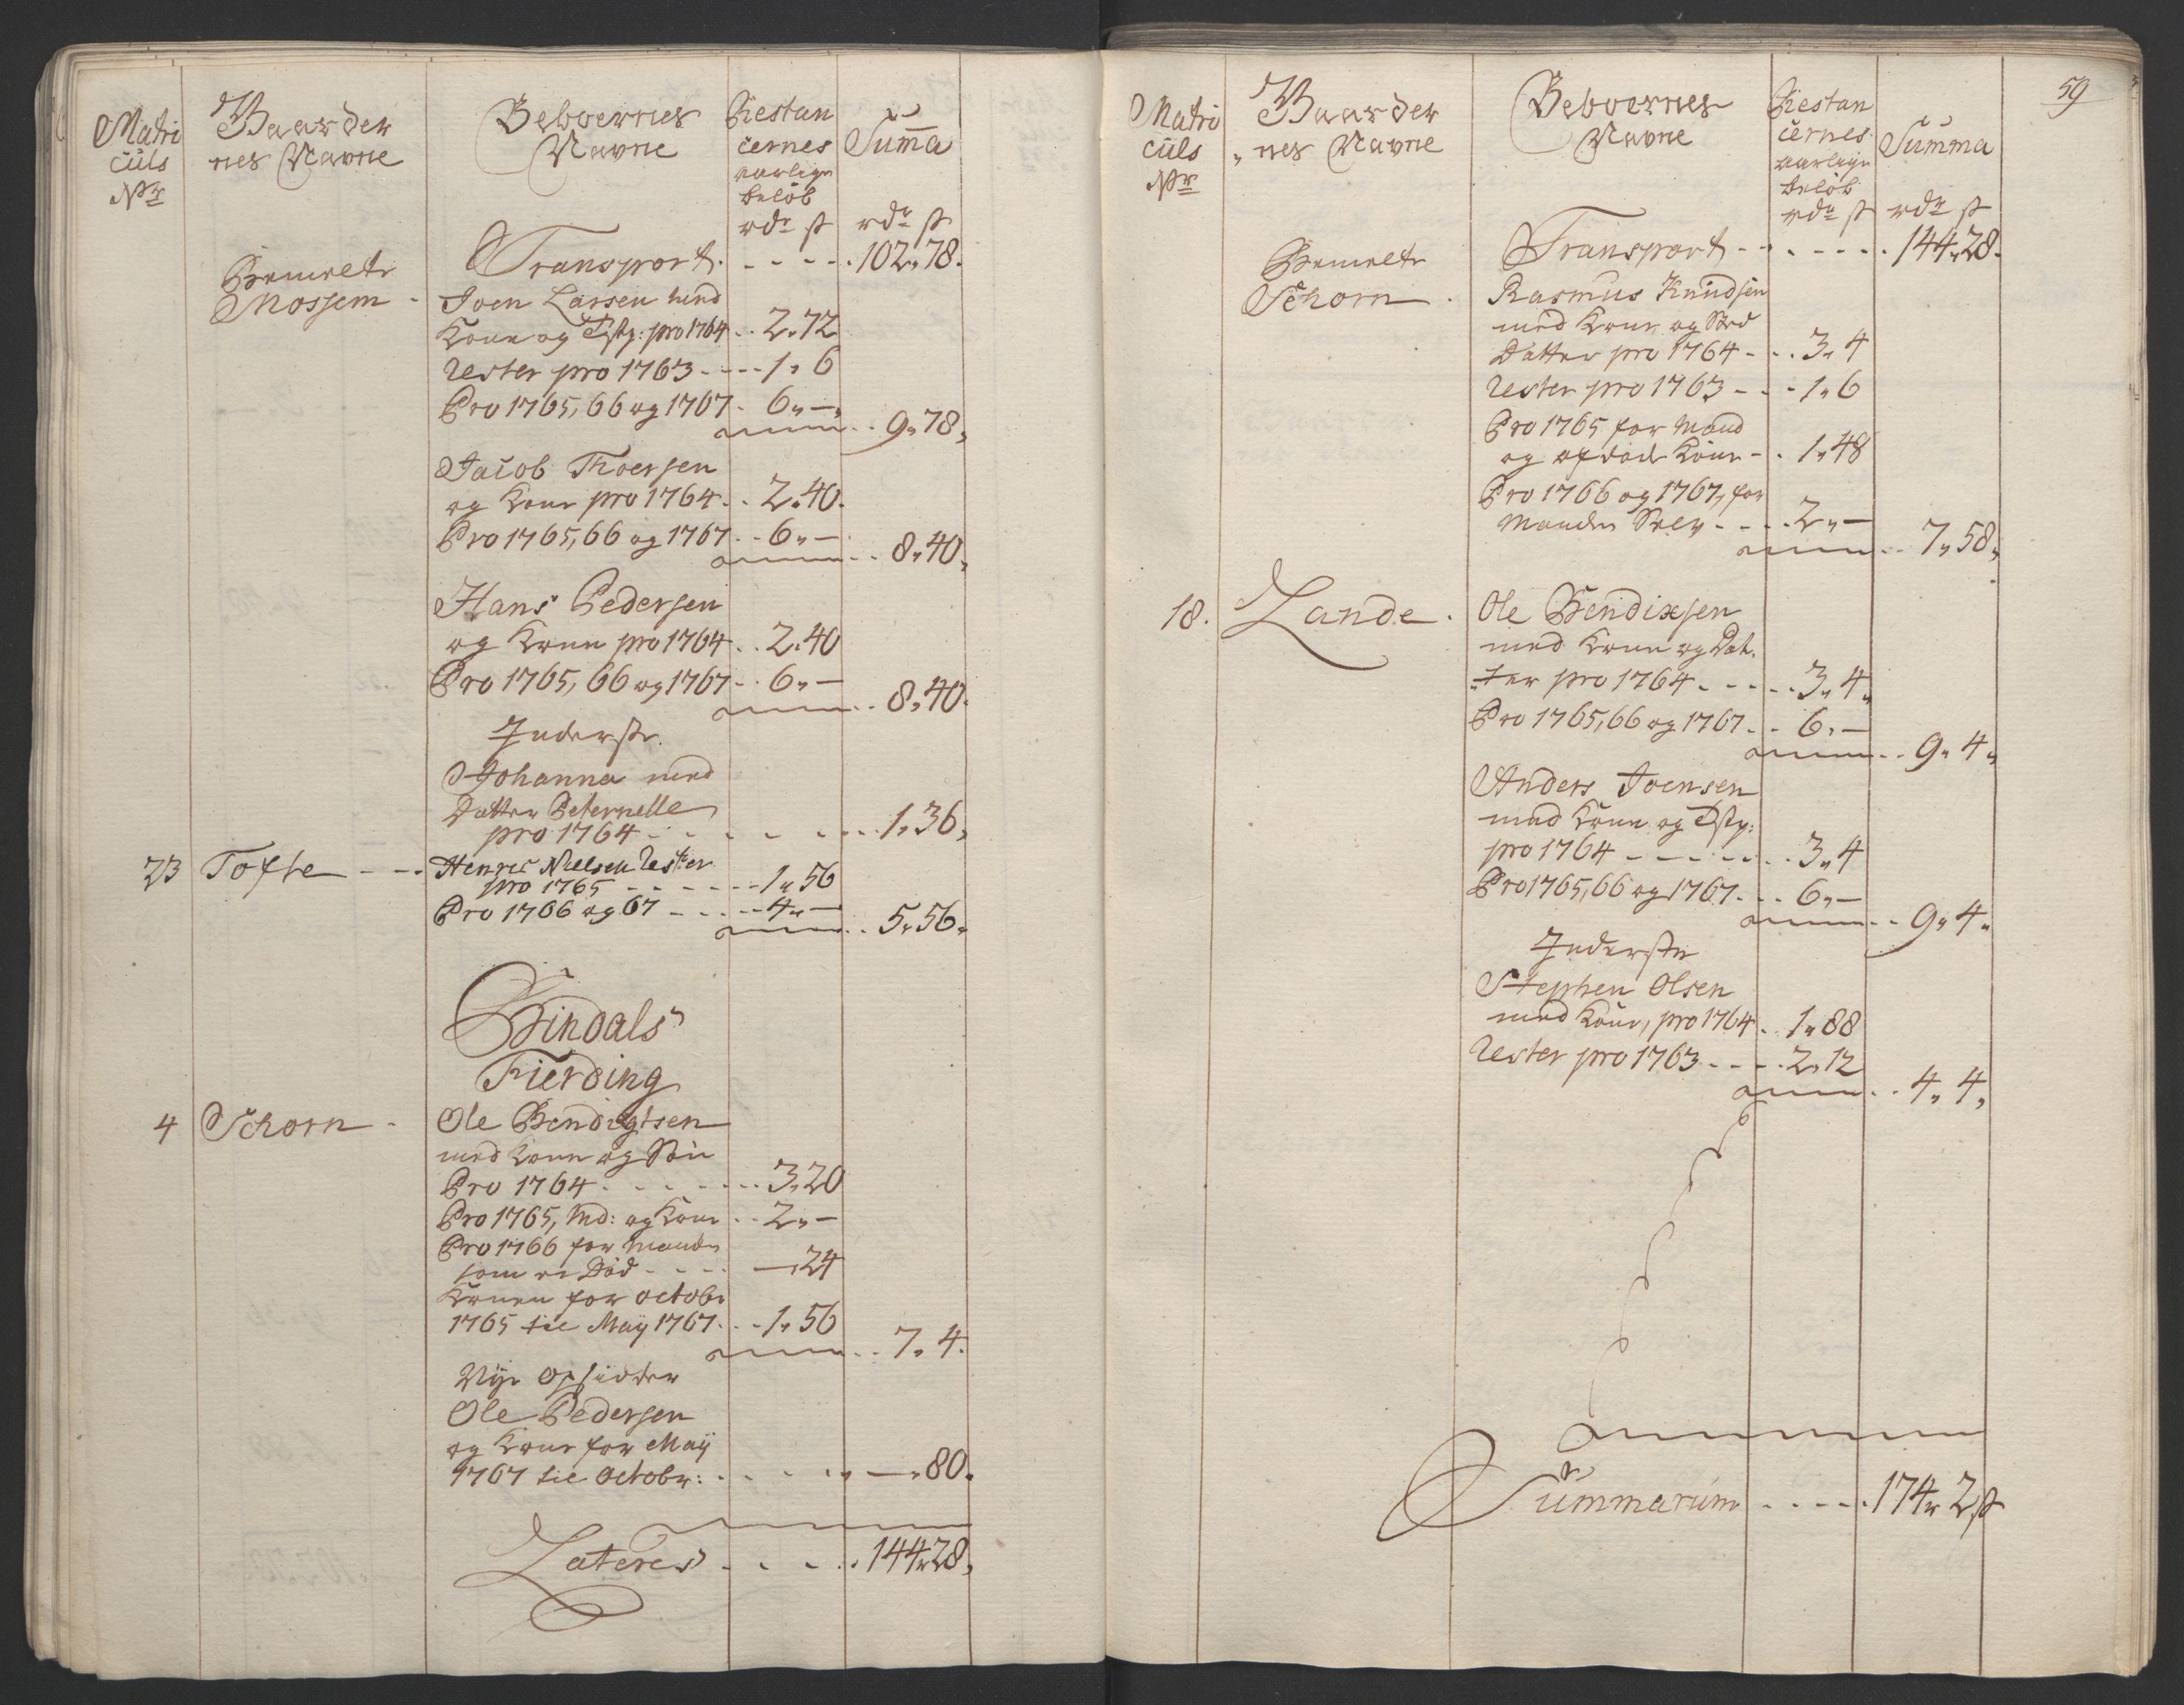 Matri
culs
Nr
Gaarder
nes Navne
Beboernes
Navne
Restan
cernes
aarlige
beløb
rdr ß
Summa
rdr ß
Transport. - - - - . 102 „ 78.
Bemelte
Mossem -
Joen Larsen med
Kone og Tstp: pro 1764 . . 2 „ 72
Rester pro 1763 - - - - 1 „ 6
Pro 1765, 66 og 1767 - 6 „ —
9 „ 78 „
Jacob Thoersen
og Kone pro 1764 . . 2 „ 40.
Pro 1765, 66 og 1767 . - 6 „ —
8 „ 40 „
Hans Pedersen
og Kone pro 1764 . . 2 „ 40
Pro 1765, 66 og 1767 - . 6 „ —
8 „ 40.
Inderste
Johanna med
Datter Peternelle
pro 1764 - - - - - - 1 „ 36 „
23 Tofte - - - Henric Nielsen Rester
pro 1765 - - - - - - 1 „ 56
Pro 1766 og 67 - - - - 4 „ —
5 „ 56 „
Bindals
Fierding
4 Schorn - Ole Bendigtsen
med Kone og Søn
Pro 1764 - - - - - - 3 „ 20
Pro 1765, Md: og Kone . . 2 „ —
Pro 1766 for Manden
som er Død - - - - — „ 24
Konen for octobr
1765 til Maÿ 1767 . . - 1 „ 56
7 „ 4.
Nÿe Opsidder
Ole Pedersen
og Kone for Maÿ
1767 til Octobr: . - - - - „ — „ 80.
Lateres - - - - . 144 „ 28 „
59
Matri
culs
Nr
Gaarder
„ nes Navne
Beboernes
Navne
Restan
cernes
aarlige
beløb
rdr ß
Summa
rdr ß
Transport - - - - - - . 144 „ 28.
Bemelte
Schorn .
Rasmus Knudsen
med Kone og Sted
Datter pro 1764 - . . 3 „ 4
Rester pro 1763 - - - 1 „ 6
Pro 1765 for Mand
og afdøde Kone - . 1 „ 48
Pro 1766 og 1767, for
Manden Selv - - - . 2 „ —
7 „ 58 „
18. Lande . Ole Bendixsen
med Kone og Dat-
„ ter pro 1764 . - - - . . 3 „ 4 „
Pro 1765, 66 og 1767 . . - 6 „ —
9 „ 4 „
Anders Joensen
med Kone og Tstp:
pro 1764 - - - - - . . 3 „ 4
Pro 1765, 66 og 1767 . . . 6 „ —
9 „ 4 „
Inderste
Stephen Olsen
med Kone, pro 1764 . . 1 „ 88
Rester pro 1763 . - - - 2 „ 12
4 „ 4 „
Summarum . - - - . 174 „ 2 ß